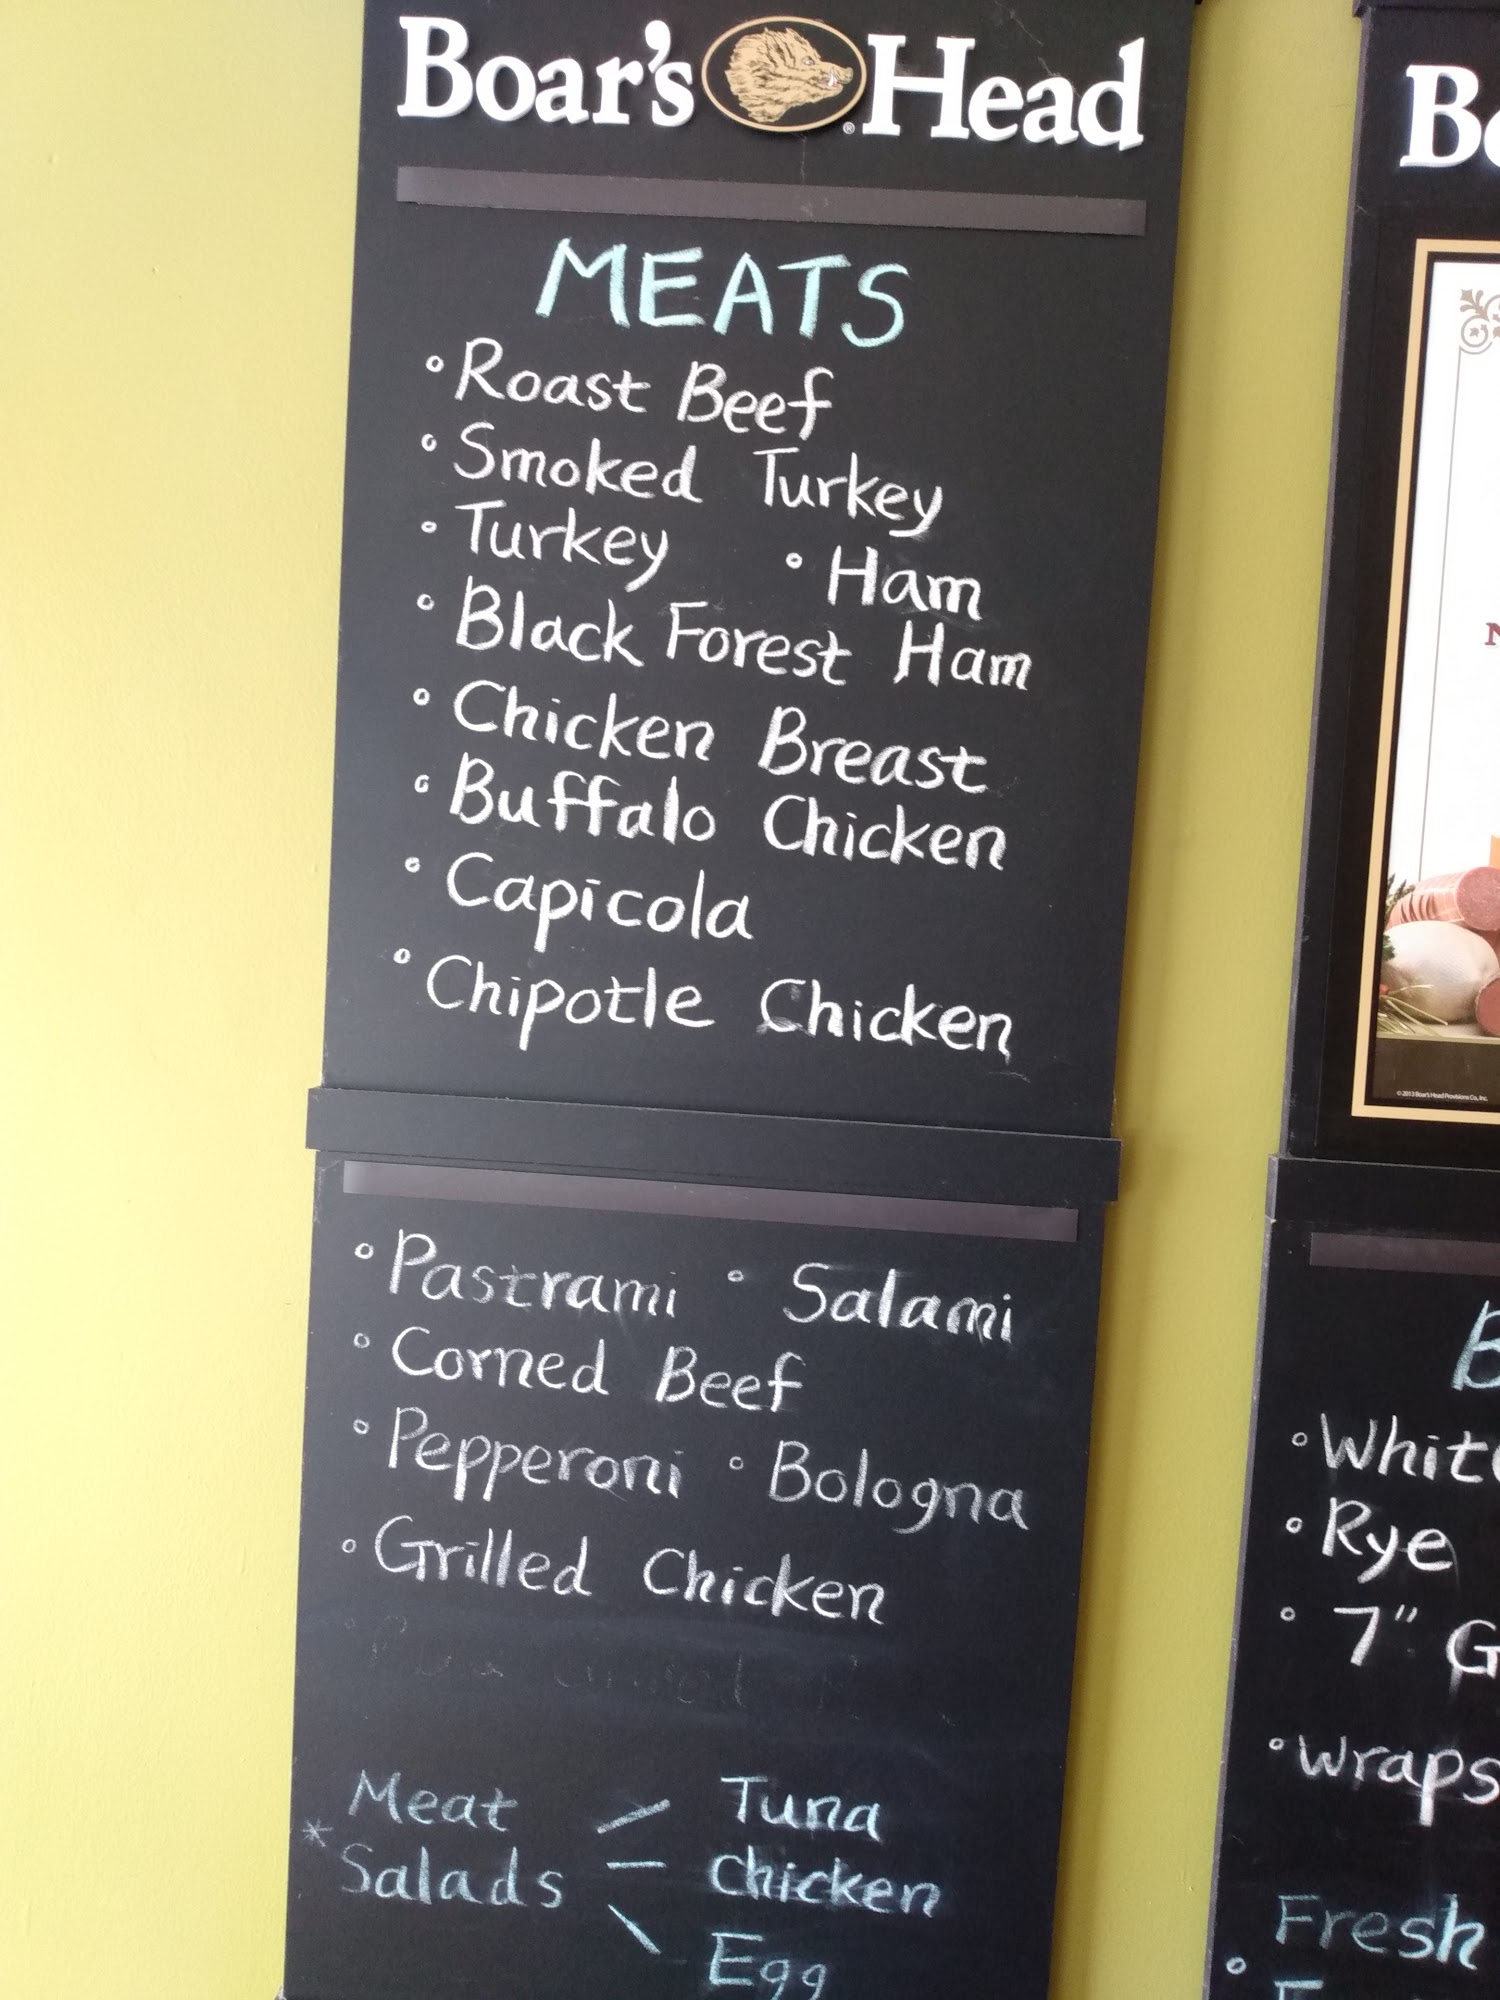 Boar's Head
MEATS
° Roast Beef
° Smoked Turkey
° Turkey ° Ham
° Black Forest Ham
° Chicken Breast
° Buffalo Chicken
° Capicola
° Chipotle Chicken
° Pastrami ° Salami
° Corned Beef
° Pepperoni ° Bologna
° Grilled Chicken
Meat
* Salads
Tuna
Chicken
Egg
© 2013 Boar's Head Provisions Co., Inc.
° White
° Rye
° 7" G
° wraps
Fresh